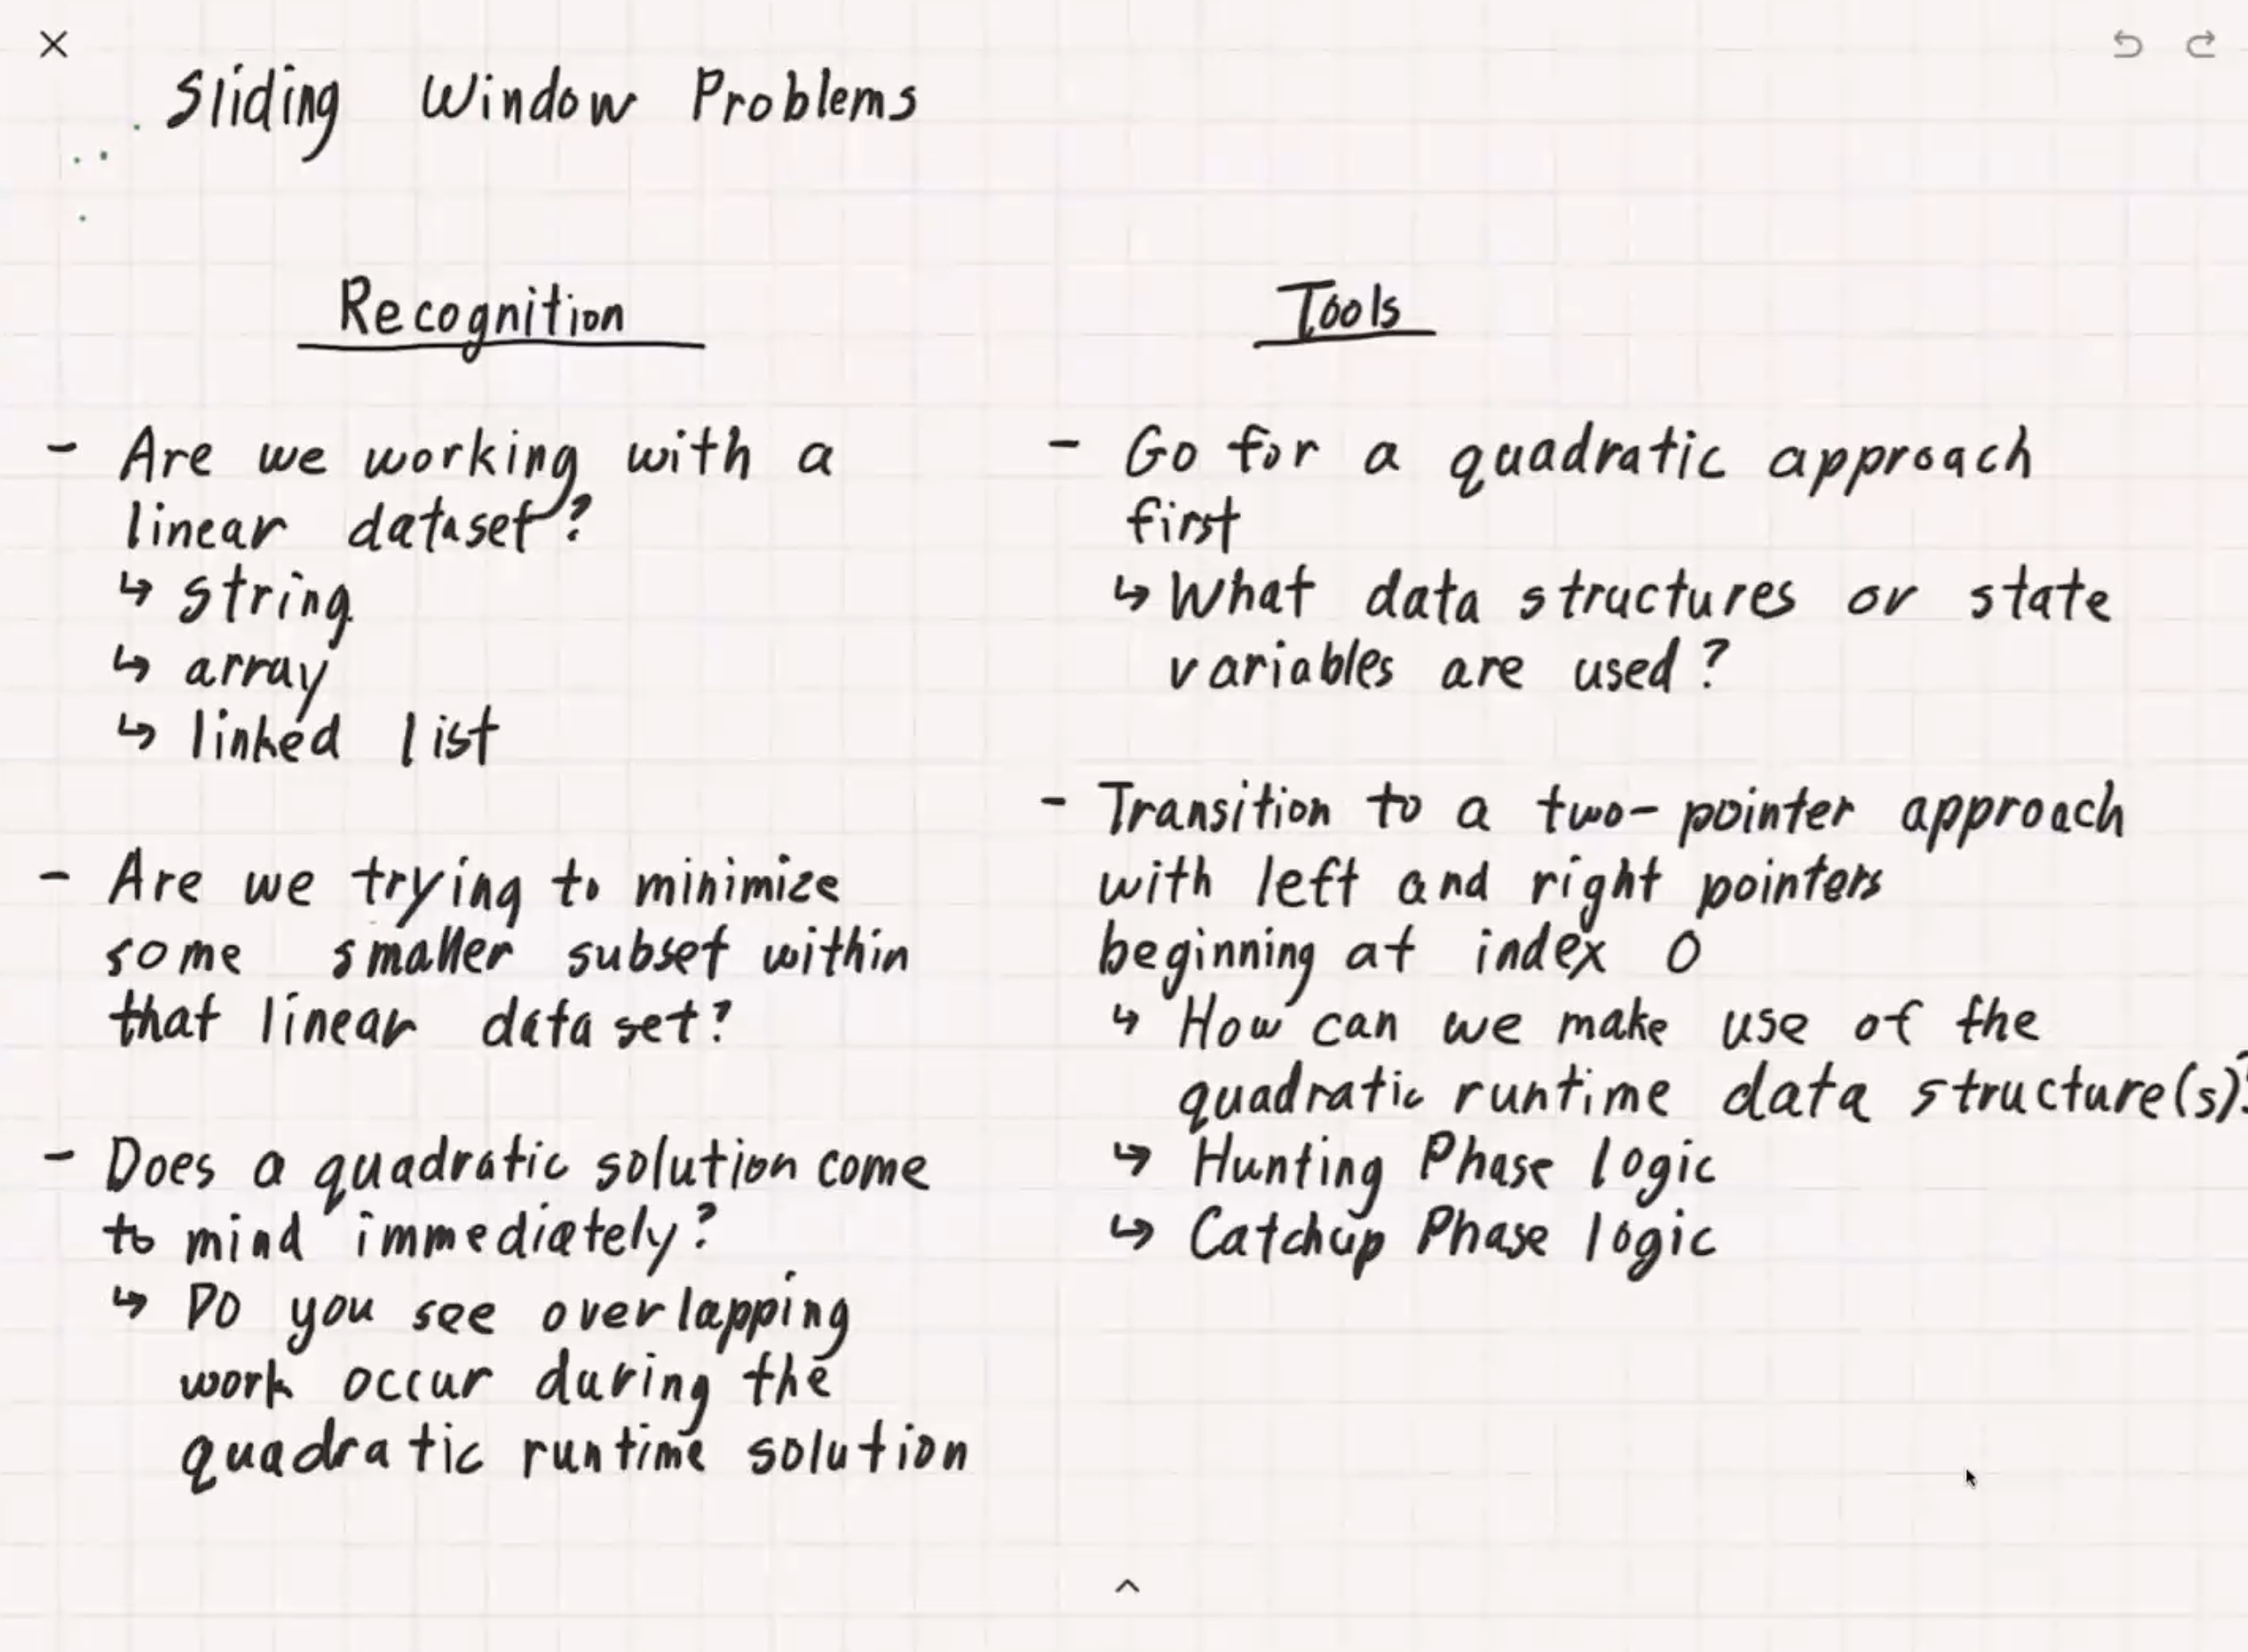 Sliding Window Problems
Recognition
- Are we working with a
linear dataset?
↳ string
↳ array
↳ linked list
- Are we trying to minimize
some smaller subset within
that linear data set?
- Does a quadratic solution come
to mind immediately?
↳ Do you see overlapping
work occur during the
quadratic runtime solution
Tools
- Go for a quadratic approach
first
↳ What data structures or state
variables are used?
- Transition to a two-pointer approach
with left and right pointers
beginning at index 0
↳ How can we make use of the
quadratic runtime data structure(s)?
↳ Hunting Phase logic
↳ Catchup Phase logic